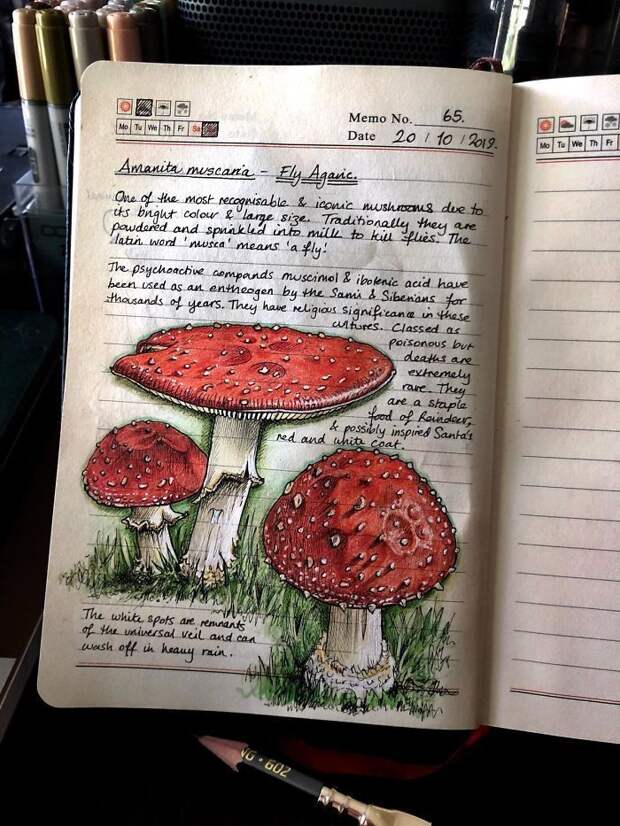 Memo No. 65.
Mo Tu We Th Fr Sa
Date 20 / 10 / 2019.
Amanita muscaria - Fly Agaric.
One of the most recognisable & iconic mushrooms due to
its bright colour & large size. Traditionally they are
powdered and sprinkled into milk to kill flies. The
latin word 'musca' means 'a fly'.
The psychoactive compounds muscimol & ibotenic acid have
been used as an entheogen by the Sami & Siberians for
thousands of years. They have religious significance in these
cultures. Classed as
poisonous but
deaths are
extremely
rare. They
are a staple
food of Reindeer,
& possibly inspired Santa's
red and white coat.
The white spots are remnants
of the universal veil and can
wash off in heavy rain.
Mo Tu We Th Fr
NG • 602